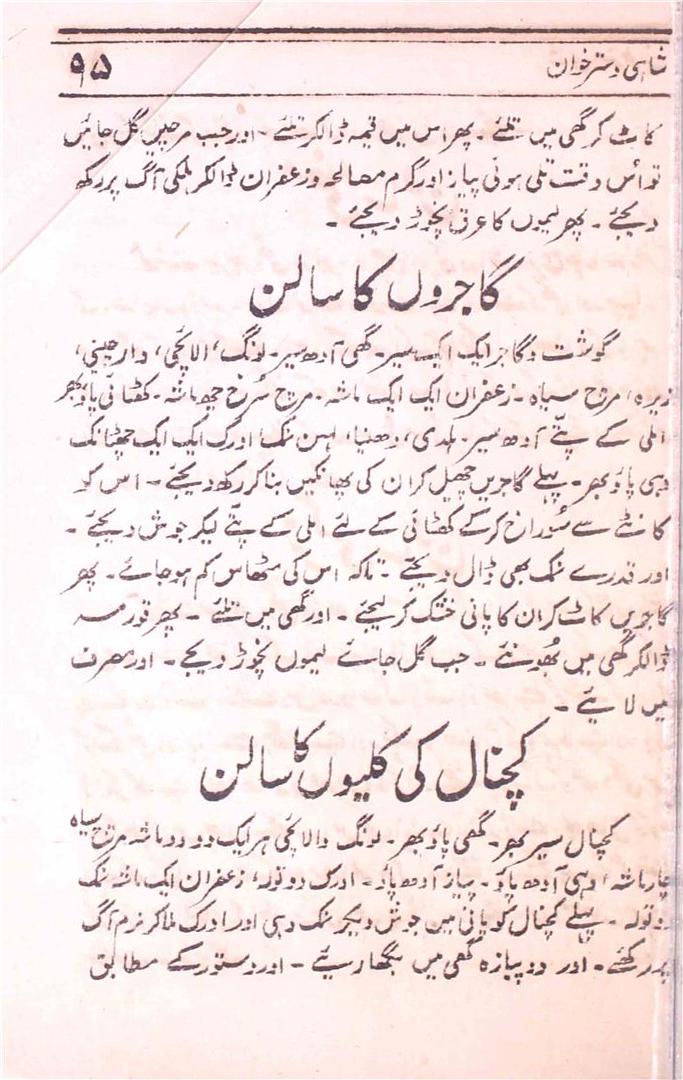 شاہی دسترخوان ۹۵
کاٹ کر گھی میں تلئے ۔ پھر اس میں قیمہ ڈالکر تلئے ۔ اور جب مرچیں گل جائیں
تو اُس وقت تلی ہوئی پیاز اور گرم مصالحہ و زعفران ڈالکر ہلکی آگ پر رکھ
دیجئے ۔ پھر لیموں کا عرق نچوڑ دیجئے ۔
گاجروں کا سالن
گوشت و گاجر ایک ایک سیر ۔ گھی آدھ سیر ۔ لونگ، الائچی، دارچینی،
زیرہ، مرچ سیاہ ۔ زعفران ایک ایک ماشہ ۔ مرچ سُرخ چھ ماشہ ۔ کھٹائی پاؤ بھر
املی کے پتّے آدھ سیر ۔ ہلدی، دھنیا، لہسن نمک، ادرک ایک ایک چھٹانک
دہی پاؤ بھر ۔ پہلے گاجریں چھیل کر ان کی پھانکیں بنا کر رکھ دیجئے ۔ اس کو
کانٹے سے سُوراخ کر کے کھٹائی کے لئے املی کے پتّے لیکر جوش دیجئے ۔
اور قدرے نمک بھی ڈال دیجئے ۔ تاکہ اس کی مٹھاس کم ہو جائے ۔ پھر
گاجریں کاٹ کر ان کا پانی خشک کر لیجئے ۔ اور گھی میں تلئے ۔ پھر قورمہ
ڈالکر گھی میں بھُونئے ۔ جب گل جائے لیموں نچوڑ دیجے ۔ اور مصرف
میں لایئے ۔
کچنال کی کلیوں کا سالن
کچنال سیر بھر ۔ گھی پاؤ بھر ۔ لونگ والائچی ہر ایک دو دو ماشہ مرچ سیاہ
چار ماشہ، دہی آدھ پاؤ ۔ پیاز آدھ پاؤ ۔ ادرک دو تولہ، زعفران ایک ماشہ نمک
دو تولہ ۔ پہلے کچنال کو پانی میں جوش دیکر نمک دہی اور ادرک ملا کر نرم آگ
پر رکھئے ۔ اور دو پیازہ گھی میں بگھاریئے ۔ اور دستور کے مطابق